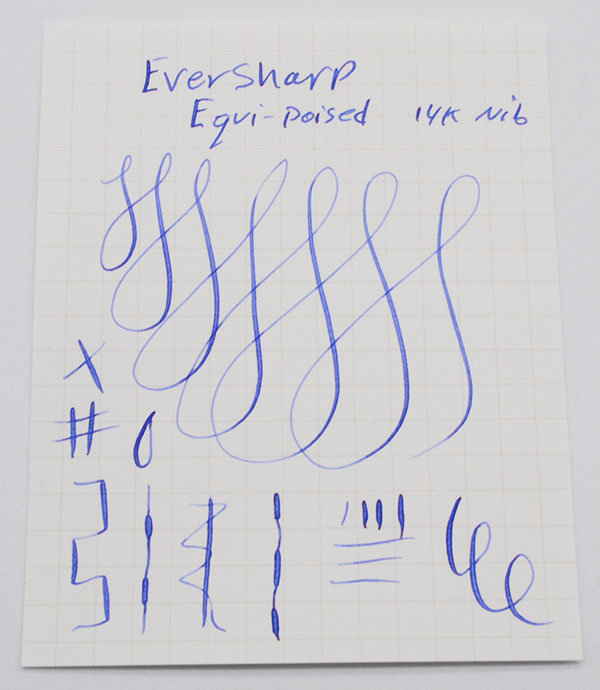 EverSharp
Equi-Poised 14K Nib
X
#